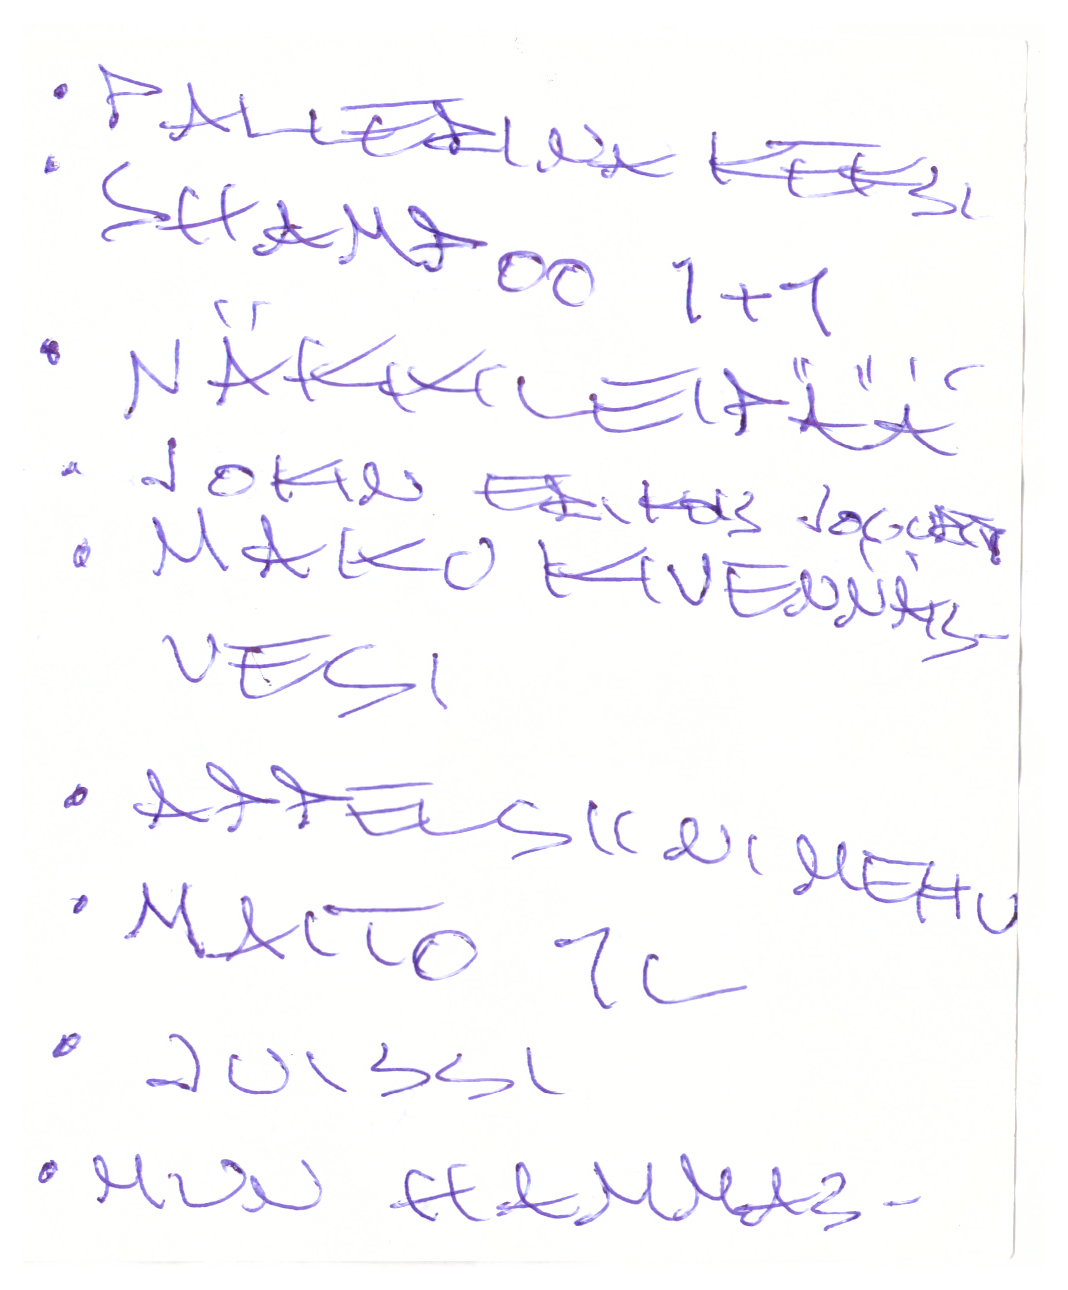 • PALLERINA KEKSI
• SHAMPOO 1+1
• NÄKKILEIPÄÄ
• JOKIN ERIKOIS
• MAKU KIVENNÄIS-
VESI
• APPELSIINIMEHU
• MAITO 1L
• JUISSI
• MUN HAMMAS-